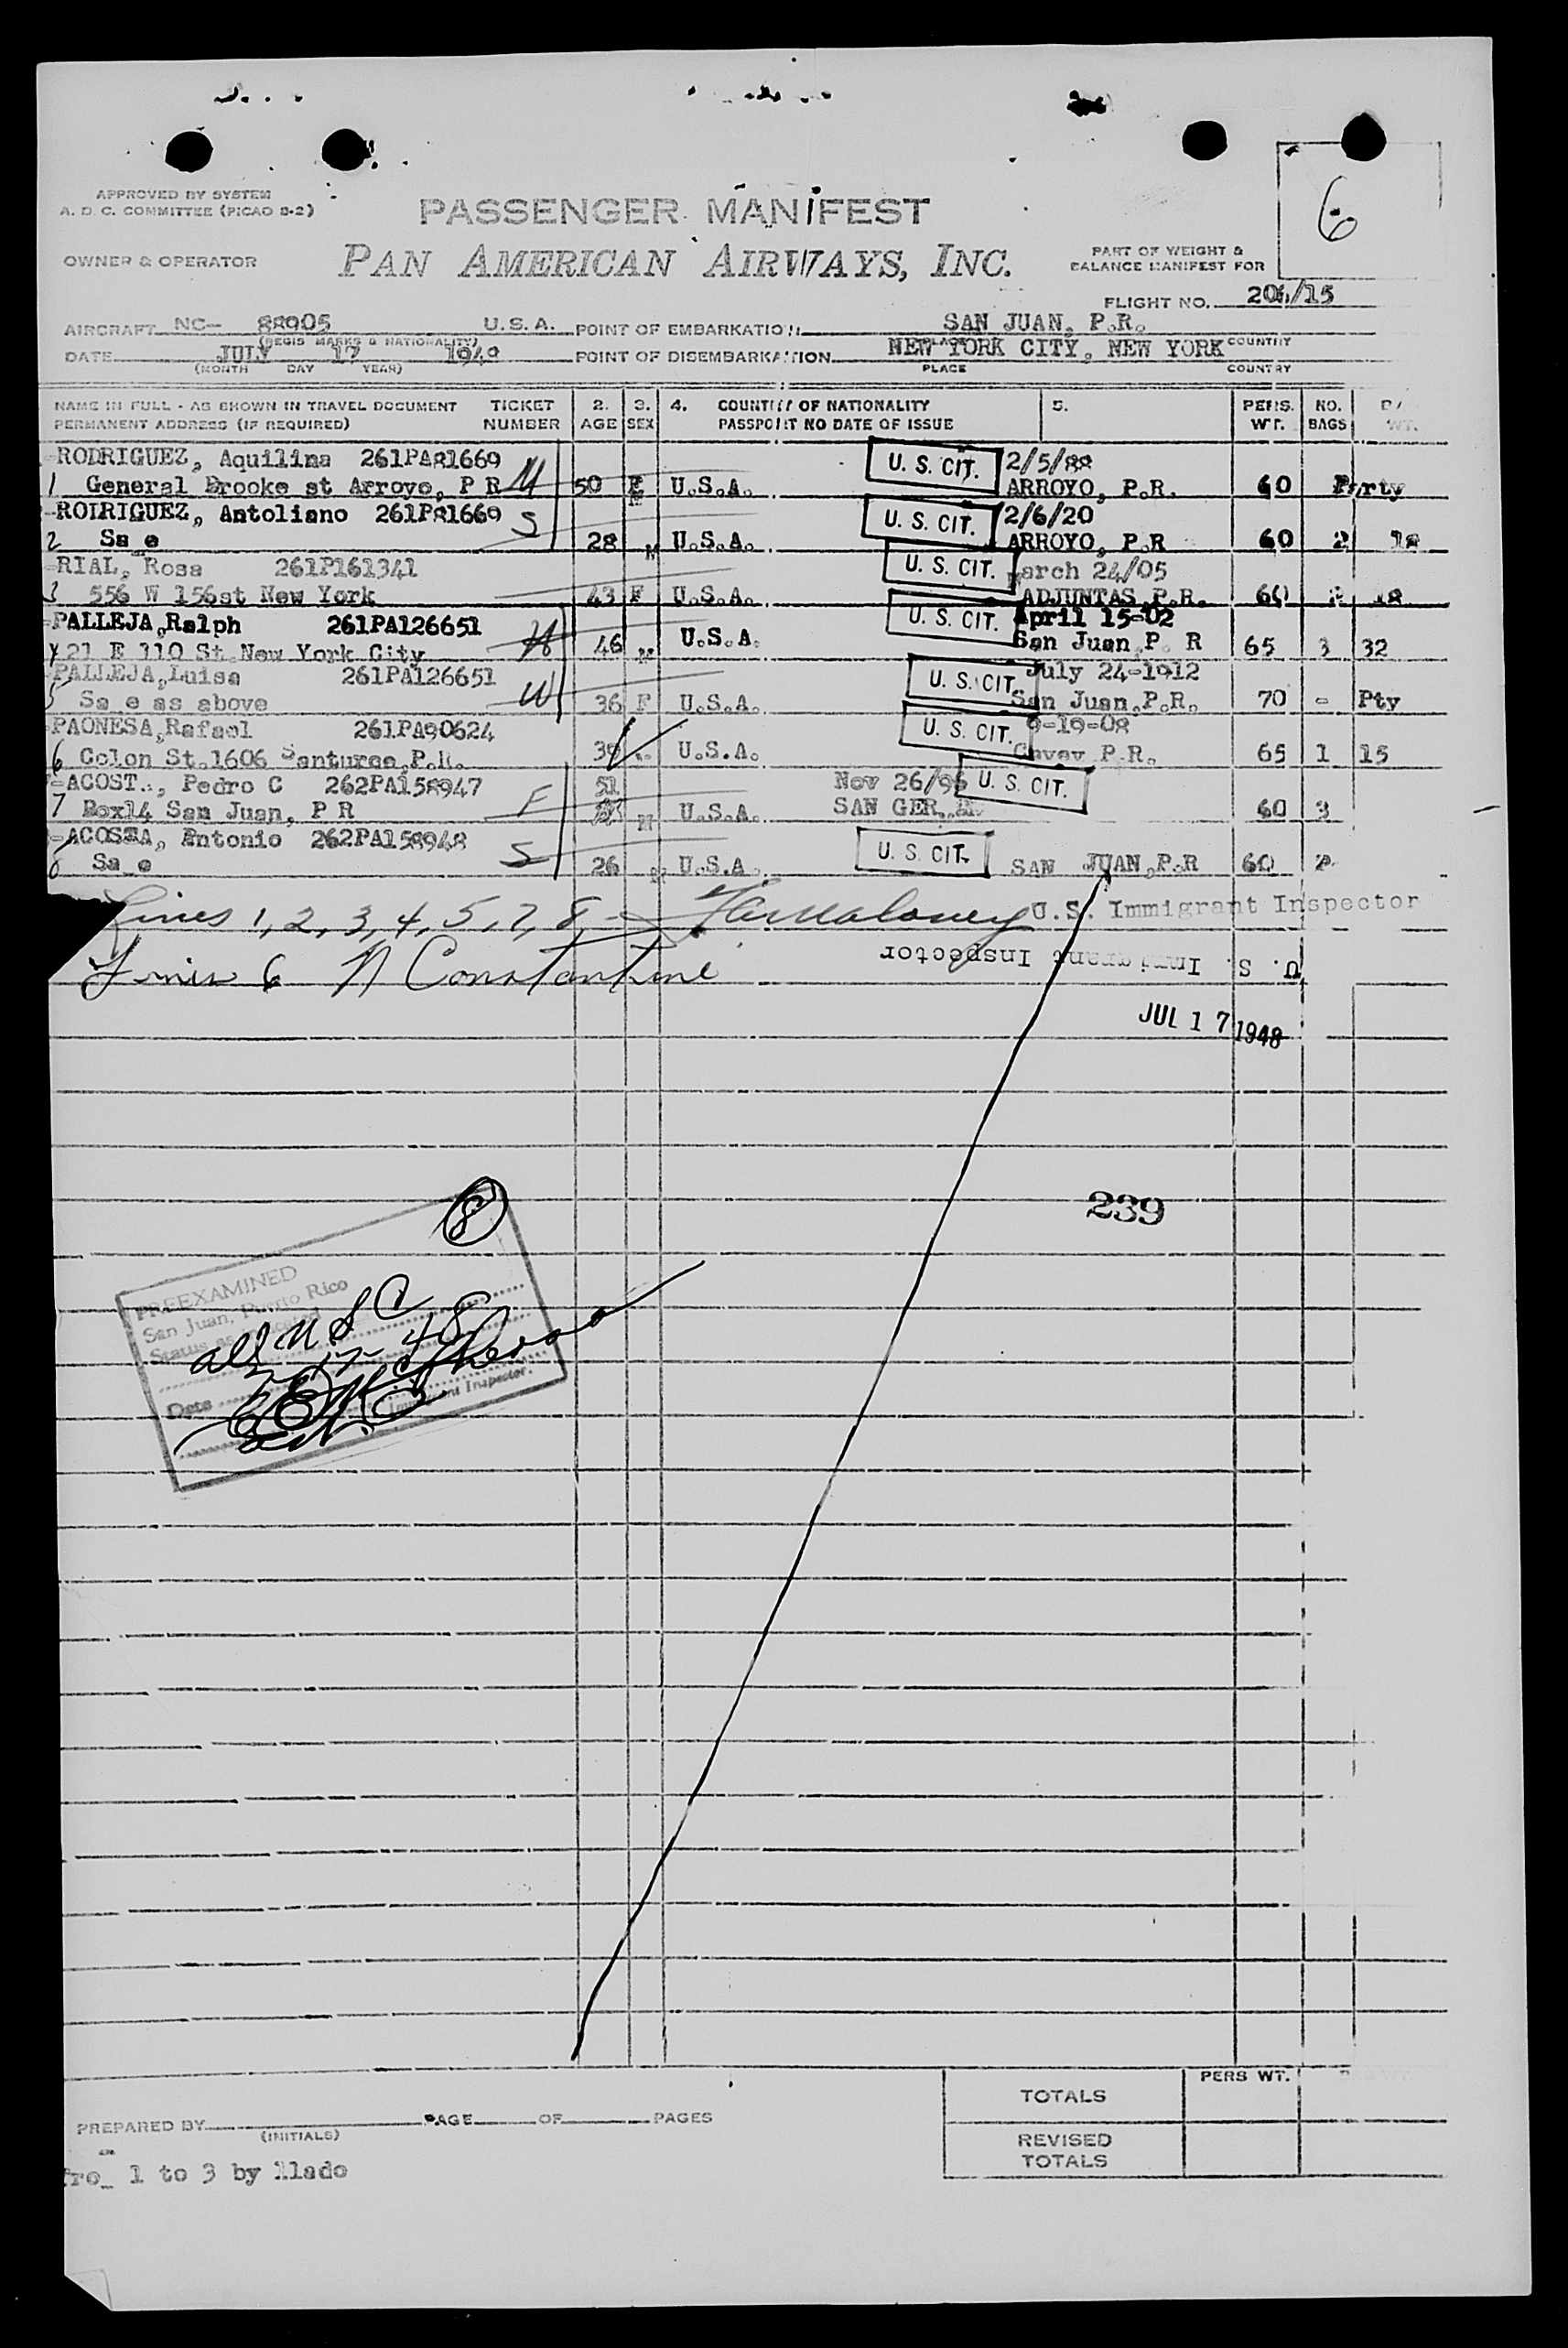 6
APPROVED BY SYSTEM
A. D. C. COMMITTEE (PICAO B-2)
PASSENGER MANIFEST
OWNER & OPERATOR
PAN AMERICAN AIRWAYS, INC.
PART OF WEIGHT &
BALANCE MANIFEST FOR
FLIGHT NO. 206/15
AIRCRAFT NC- 88905 U.S.A. POINT OF EMBARKATION SAN JUAN, P.R.
(REGIS MARKS & NATIONALITY) PLACE COUNTRY
DATE JULY 17 1948 POINT OF DISEMBARKATION NEW YORK CITY, NEW YORK
(MONTH DAY YEAR) PLACE COUNTRY
NAME IN FULL - AS SHOWN IN TRAVEL DOCUMENT TICKET 2. 3. 4. COUNTRY OF NATIONALITY 5. PERS. NO.
PERMANENT ADDRESS (IF REQUIRED) NUMBER AGE SEX PASSPORT NO DATE OF ISSUE WT. BAGS WT.
RODRIGUEZ, Aquilina 261PA81669 M U. S. CIT. 2/5/88
1 General Brooke st Arroyo, P R 50 F U.S.A. ARROYO, P.R. 60 Party
RODRIGUEZ, Antoliano 261P81669 S U. S. CIT. 2/6/20
2 Sa e 28 M U.S.A. ARROYO, P.R 60 2 18
RIAL, Rosa 261P161341 U. S. CIT. March 24/05
3 556 W 156st New York 43 F U.S.A. ADJUNTAS P.R. 60 18
PALLEJA,Ralph 261PA126651 H U. S. CIT. April 15-02
4 21 E 110 St.New York City 46 M U.S.A. San Juan,P. R 65 3 32
PALLEJA,Luisa 261PA126651 W U. S. CIT. July 24-1912
5 Sa e as above 36 F U.S.A. San Juan,P.R. 70 - Pty
PAONESA,Rafael 261PA90624 U. S. CIT. 9-19-08
6 Colon St.1606 Santurce,P.R. 39 U.S.A. Cayey P.R. 65 1 15
ACOST., Pedro C 262PA158947 F 51 Nov 26/96 U. S. CIT.
7 Box14 San Juan, P R M U.S.A. SAN GER 60 3
ACOSTA, Antonio 262PA158948 S U. S. CIT.
8 Sa e 26 U.S.A. SAN JUAN,P.R 60 2
Lines 1, 2, 3, 4, 5, 7, 8 - Maloney U.S. Immigrant Inspector
Lines 6 N Constantine U. S. Immigrant Inspector
JUL 17 1948
239
8
PREEXAMINED
San Juan, Puerto Rico
Status as indicated
all U S C
7-17-48
Date
Immigrant Inspector.
TOTALS PERS WT.
PREPARED BY PAGE OF PAGES
(INITIALS)
REVISED
TOTALS
fro_ 1 to 3 by llado